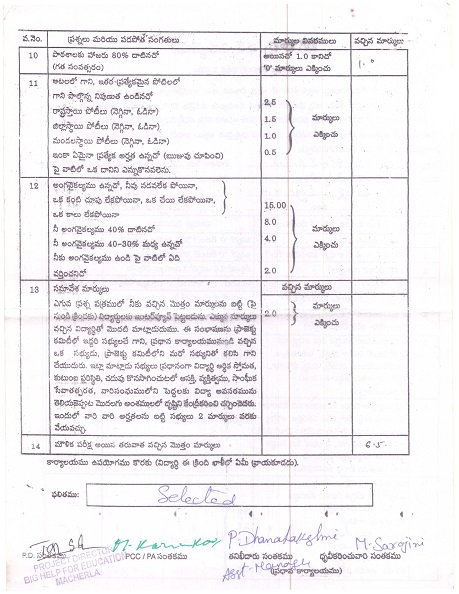 వ.నెం. ప్రశ్నలు మరియు పరపోత సంగతులు మార్కుల వివరములు వచ్చిన మార్కులు
10 పాఠశాలకు హాజరు 80% దాటినచో అయినచో 1.0 కానిచో 1.0
(గత సంవత్సరం) '0' మార్కులు ఎక్కించు
11 ఆటలలో గాని, ఇతర ప్రత్యేకమైన పోటీలలో
గాని పాల్గొన్న నిపుణుత ఉండినచో
రాష్ట్రస్థాయి పోటీలు (నెగ్గినా, ఓడినా) 2.5
జిల్లాస్థాయి పోటీలు (నెగ్గినా, ఓడినా) 1.5 మార్కులు
మండలస్థాయి పోటీలు (నెగ్గినా, ఓడినా) 1.0 ఎక్కించు
ఇంకా ఏమైనా ప్రత్యేక అర్హత ఉన్నచో (ఋజువు చూపించి) 0.5
పై వాటిలో ఒక దానిని ఎన్నుకొనవలెను.
12 అంగవైకల్యము ఉన్నచో, నీవు నడవలేక పోయినా,
ఒక కంటి చూపు లేకపోయినా, ఒక చేయి లేకపోయినా, 15.00
ఒక కాలు లేకపోయినా 8.0
నీ అంగవైకల్యము 40% దాటినచో 4.0 మార్కులు
నీ అంగవైకల్యము 40-39% మధ్య ఉన్నచో ఎక్కించు
నీకు అంగవైకల్యము ఉండి పై వాటిలో ఏది
వర్తించనిచో 2.0
13 సమావేశ మార్కులు వచ్చిన మార్కులు
ఎగువ ప్రశ్న పత్రములో నీకు వచ్చిన మొత్తం మార్కులను బట్టి (పై 2.0 మార్కులు
నుండి క్రిందకు) విద్యార్థులకు ఇంటర్వ్యూన్ పెట్టబడును. ఎక్కువ మార్కులు ఎక్కించు
వచ్చిన విద్యార్థితో మొదటి మాట్లాడుదుము. ఈ సంభాషణను ప్రాజెక్టు
కమిటీలో ఇద్దరి సభ్యులచే గాని, ప్రధాన కార్యాలయమునుండి వచ్చిన
ఒక సభ్యుడు, ప్రాజెక్టు కమిటీలోని మరో సభ్యునితో కలిసి గాని
చేయుదురు. ఇట్లా మాట్లాడు సభ్యులు ప్రధానంగా విద్యార్థి ఆర్థిక స్తోమత,
కుటుంబ పరిస్థితి, చదువు కొనసాగించుటలో ఆసక్తి, వ్యక్తిత్వము, సాంఘీక
ఇందులో వారి వారి అర్హతలను బట్టి సభ్యులు 2 మార్కులు వరకు
వేయవచ్చు.
14 మౌళిక పరీక్ష అయిన తరువాత వచ్చిన మొత్తం మార్కులు 6.5
కార్యాలయము ఉపయోగము కొరకు (విద్యార్థి ఈ క్రింది ఖాళీలో ఏమీ వ్రాయకూడదు).
ఫలితము: Selected
P. Dhanalakshmi M. Sarojini
P.D. సంతకము PCC / PA సంతకము తనిఖీదారు సంతకము ధృవీకరించువారి సంతకము
Asst. Manager (ప్రధాన కార్యాలయము)
PROJECT DIRECTOR
BIG HELP FOR EDUCATION
MACHERLA